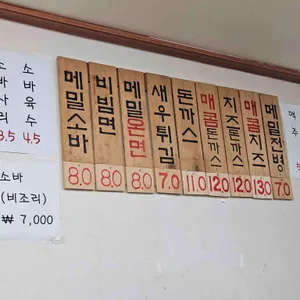 소
바
육
수
3.5 4.5
소바
(비조리)
₩ 7,000
메밀소바
8.0
비빔면
8.0
메밀온면
8.0
새우튀김
7.0
돈까스
11.0
매콤돈까스
12.0
치즈돈까스
12.0
매콤치즈
13.0
메밀전병
7.0
메